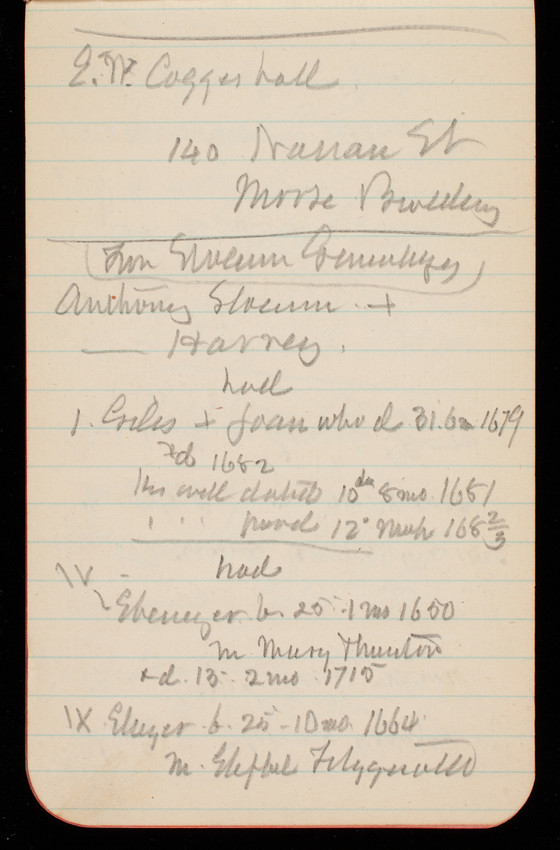 E. W. Coggeshall
140 Nassau St
Morse Building
(From Slocum Genealogy)
Anthony Slocum +
— Harvey.
had
1. Giles + Joan who d 31. 6m 1679
+ d 1682
His will dated 10 da 8 mo. 1681
" " proved 12" Mch 168 2/3
had
IV -
Ebenezer b. 25. 1 mo 1650
m Mary Thurston
+ d. 13. 2 mo. 1715
IX Eliezer b. 25 - 10 mo. 1664
m. Eliphel Fitzgerald